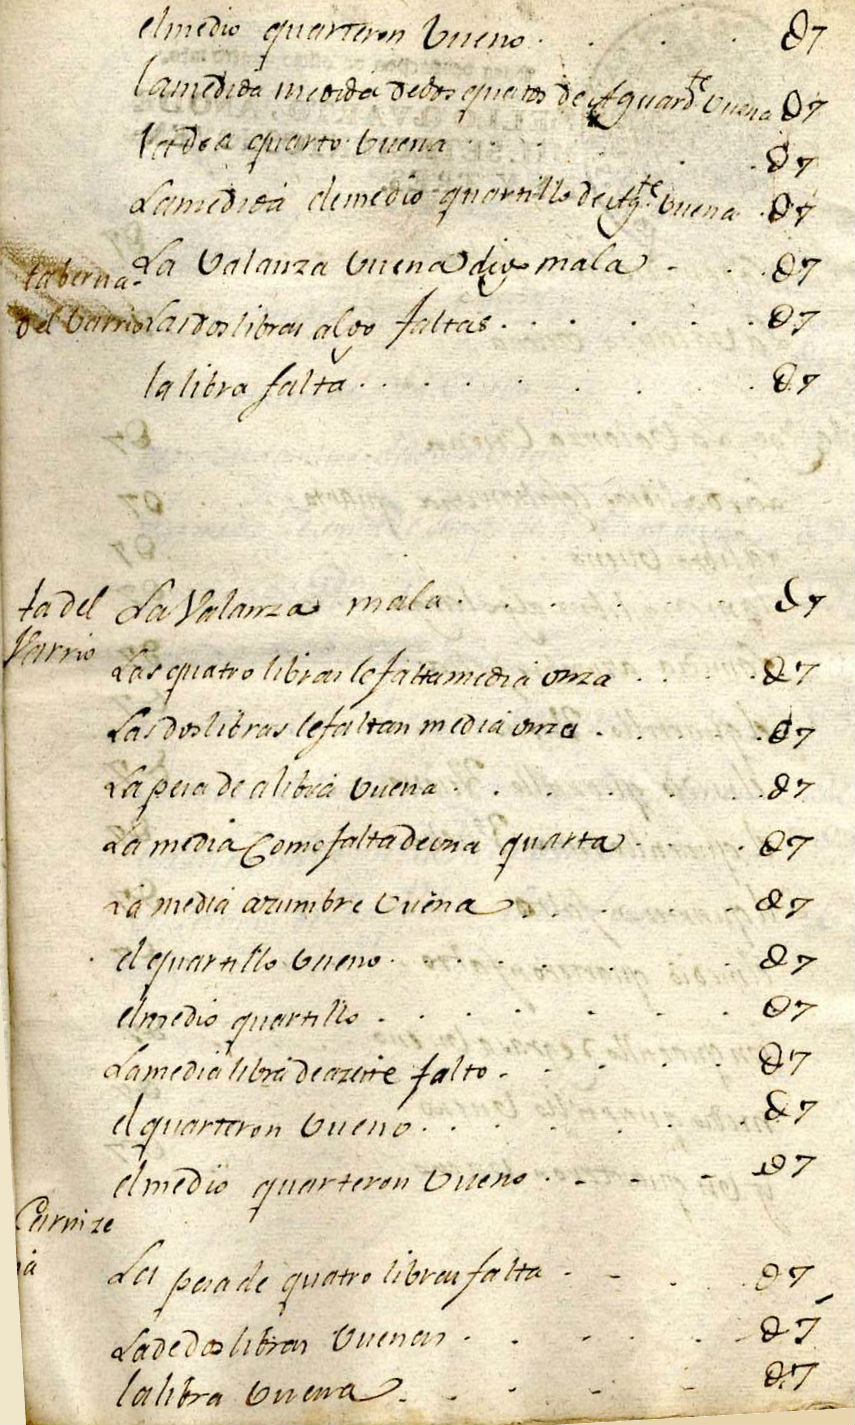 el medio quarteron bueno . . . . 87
la medida medida de dos quartos de Aguard.te buena 87
la de a quarto buena . . . . 87
La medida de medio quartillo de Ag.te buena . 87
taberna
del barrio
La Valanza buena digo mala - . . 87
Las dos libras algo faltas . . . . 87
la libra falta . . . . 87
ta del
Varrio
La Valanza mala . . . . 87
Las quatro libras le falta media onza . . . . 87
Las dos libras le faltan media onza . . . . 87
La pesa de a libra buena . . . . 87
La media Como falta de una quarta . . 87
La media azumbre buena . . . . 87
el quartillo bueno . . . . 87
el medio quartillo . . . . 87
La media libra de azeite falto . . . . 87
el quarteron bueno . . . . 87
el medio quarteron bueno . - - - 87
Carnize
ia
La pesa de quatro libras falta - - . . 87
La de dos libras buenas . . - . 87
la libra buena . . - . 87